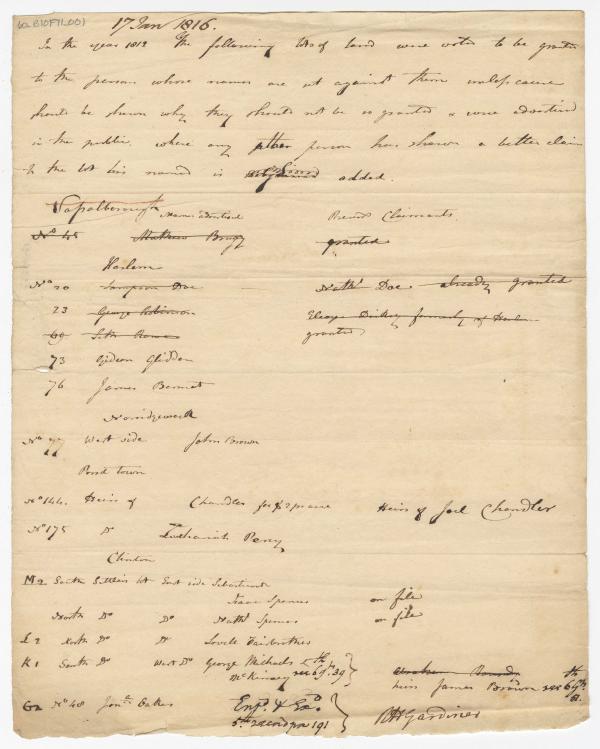 60 B10 F11 001
17 Jan 1816.
In the year 1813 the following lots of land were voted to be granted
to the persons whose names are set against them unless cause
should be shewn why they should not be so granted & were advertised
in the public where any other person has shewn a better claim
to the lot his name is added.
Vassalborough Names advertised Claimants
No 45 Mathew granted
Harlem
No 20 Sampson Doe Nathl Doe already granted
23 George Robinson formerly of
69 Seth Rowe granted
73 Gideon Glidden
76 James Bennet
Norridgewock
No 77 West side John Brown
Pond town
No 144 Heirs of Chandler Heirs of Joel Chandler
No 175 Do Zachariah Percy
Clinton
M 2 South Settlers lot East side Sebasticook
Isaac Spencer on file
North Do Do Nathl Spencer on file
L 2 North Do Do Lovell Fairbrother
K 1 South Do West Do George Michaels
McKinney see 6th 39 heirs James Brown see 6th
G2 No 48 Jona Oakes
5th record pa 191 RH Gardiner